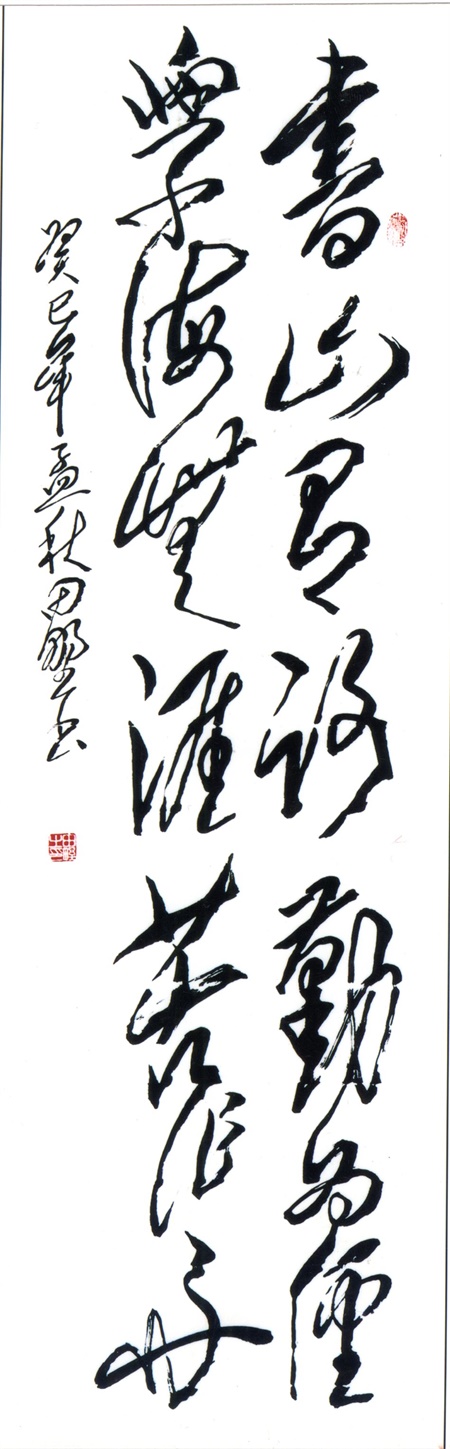 書山有路勤為徑
學海無涯苦作舟
癸巳年孟秋田野書